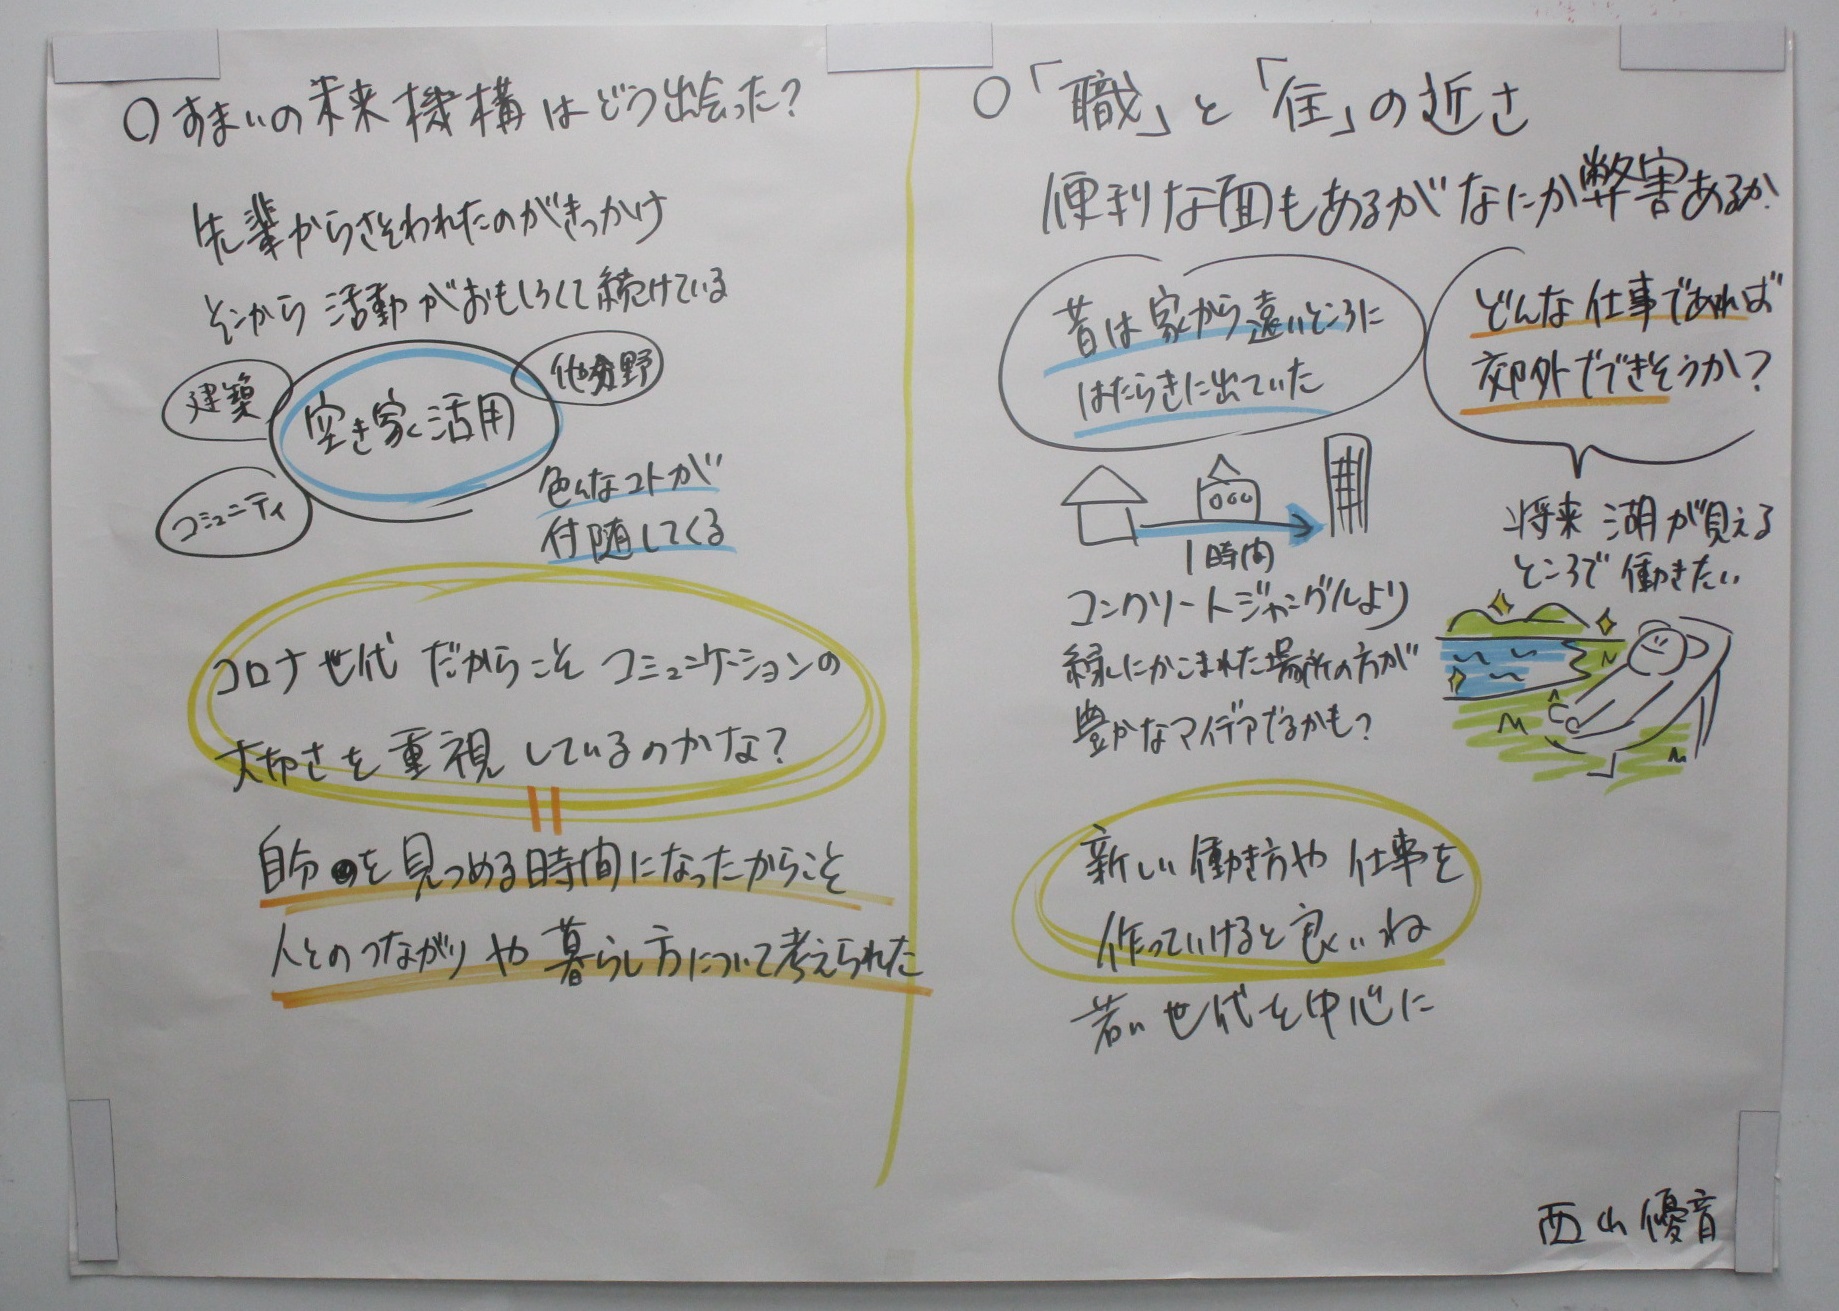 ○すまいの未来機構はどう出会った?
先輩からさそわれたのがきっかけ
そこから活動がおもしろくて続けている
建築
空き家活用
他分野
コミュニティ
色んなコトが
付随してくる
コロナ世代だからこそコミュニケーションの
大切さを重視しているのかな?
自分を見つめる時間になったからこそ
人とのつながりや暮らし方について考えられた
○「職」と「住」の近さ
便利な面もあるがなにか弊害あるか?
昔は家から遠いところに
はたらきに出ていた
どんな仕事であれば
郊外でできそうか?
1時間
将来湖が見える
ところで働きたい
コンクリートジャングルより
緑にかこまれた場所の方が
豊かなアイデアでるかも?
新しい働き方や仕事を
作っていけると良いね
若い世代を中心に
西山優音